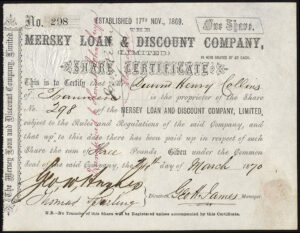 No. 298 ESTABLISHED 17TH NOV., 1869. One Share.
THE
MERSEY LOAN & DISCOUNT COMPANY,
(LIMITED)
IN 5000 SHARES OF £5 EACH.
SHARE CERTIFICATE
This is to Certify that Henry Collins
of is the proprietor of the Share
No. 298 of the MERSEY LOAN AND DISCOUNT COMPANY, LIMITED,
subject to the Rules and Regulations of the said Company, and
that up to this date there has been paid up in respect of such
Share the sum of Three Pounds. Given under the Common
Seal of the said Company, the day of March 1870
Geo. W. Hughes
Thomas
Directors.
Geo. H. James, Manager.
N.B.—No Transfer of this Share will be Registered unless accompanied by this Certificate.
The Mersey Loan and Discount Company, Limited